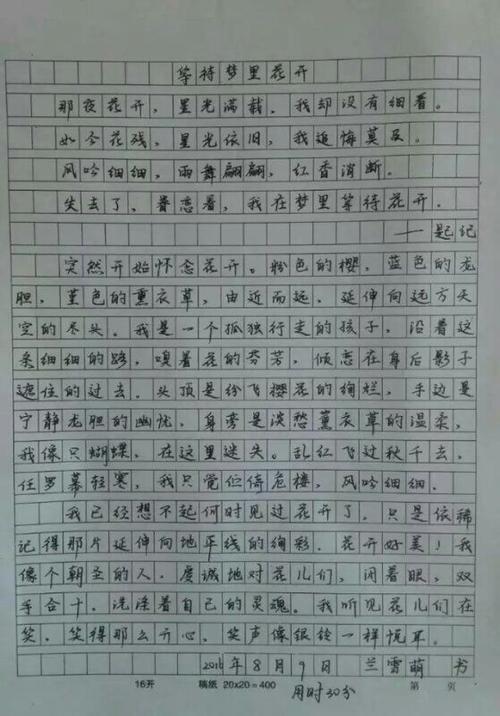 等待梦里花开
那夜花开，星光满载。我却没有细看。
如今花残，星光依旧，我追悔莫及。
风吟细细，雨舞翩翩，红香消断。
失去了，眷恋着，我在梦里等待花开。
——题记
突然开始怀念花开。粉色的樱，蓝色的龙
胆，堇色的薰衣草，由近而远，延伸向远方天
空的尽头。我是一个孤独行走的孩子，沿着这
条细细的路，嗅着花的芬芳，倾恋在身后影子
遮住的过去。头顶是纷飞樱花的绚烂，手边是
宁静龙胆的幽忧，身旁是淡愁薰衣草的温柔，
我像只蝴蝶，在这里迷失。乱红飞过秋千去，
任罗幕轻寒，我只觉伫倚危楼，风吟细细。
我已经想不起何时见过花开了。只是依稀
记得那片延伸向地平线的绚彩。花开好美！我
像个朝圣的人，虔诚地对花儿们，闭着眼，双
手合十，洗涤着自己的灵魂。我听见花儿们在
笑，笑得那么开心，笑声像银铃一样悦耳。
2016年8月9日 兰雪萌 书
16开 稿纸 20×20=400 第 页
用时30分